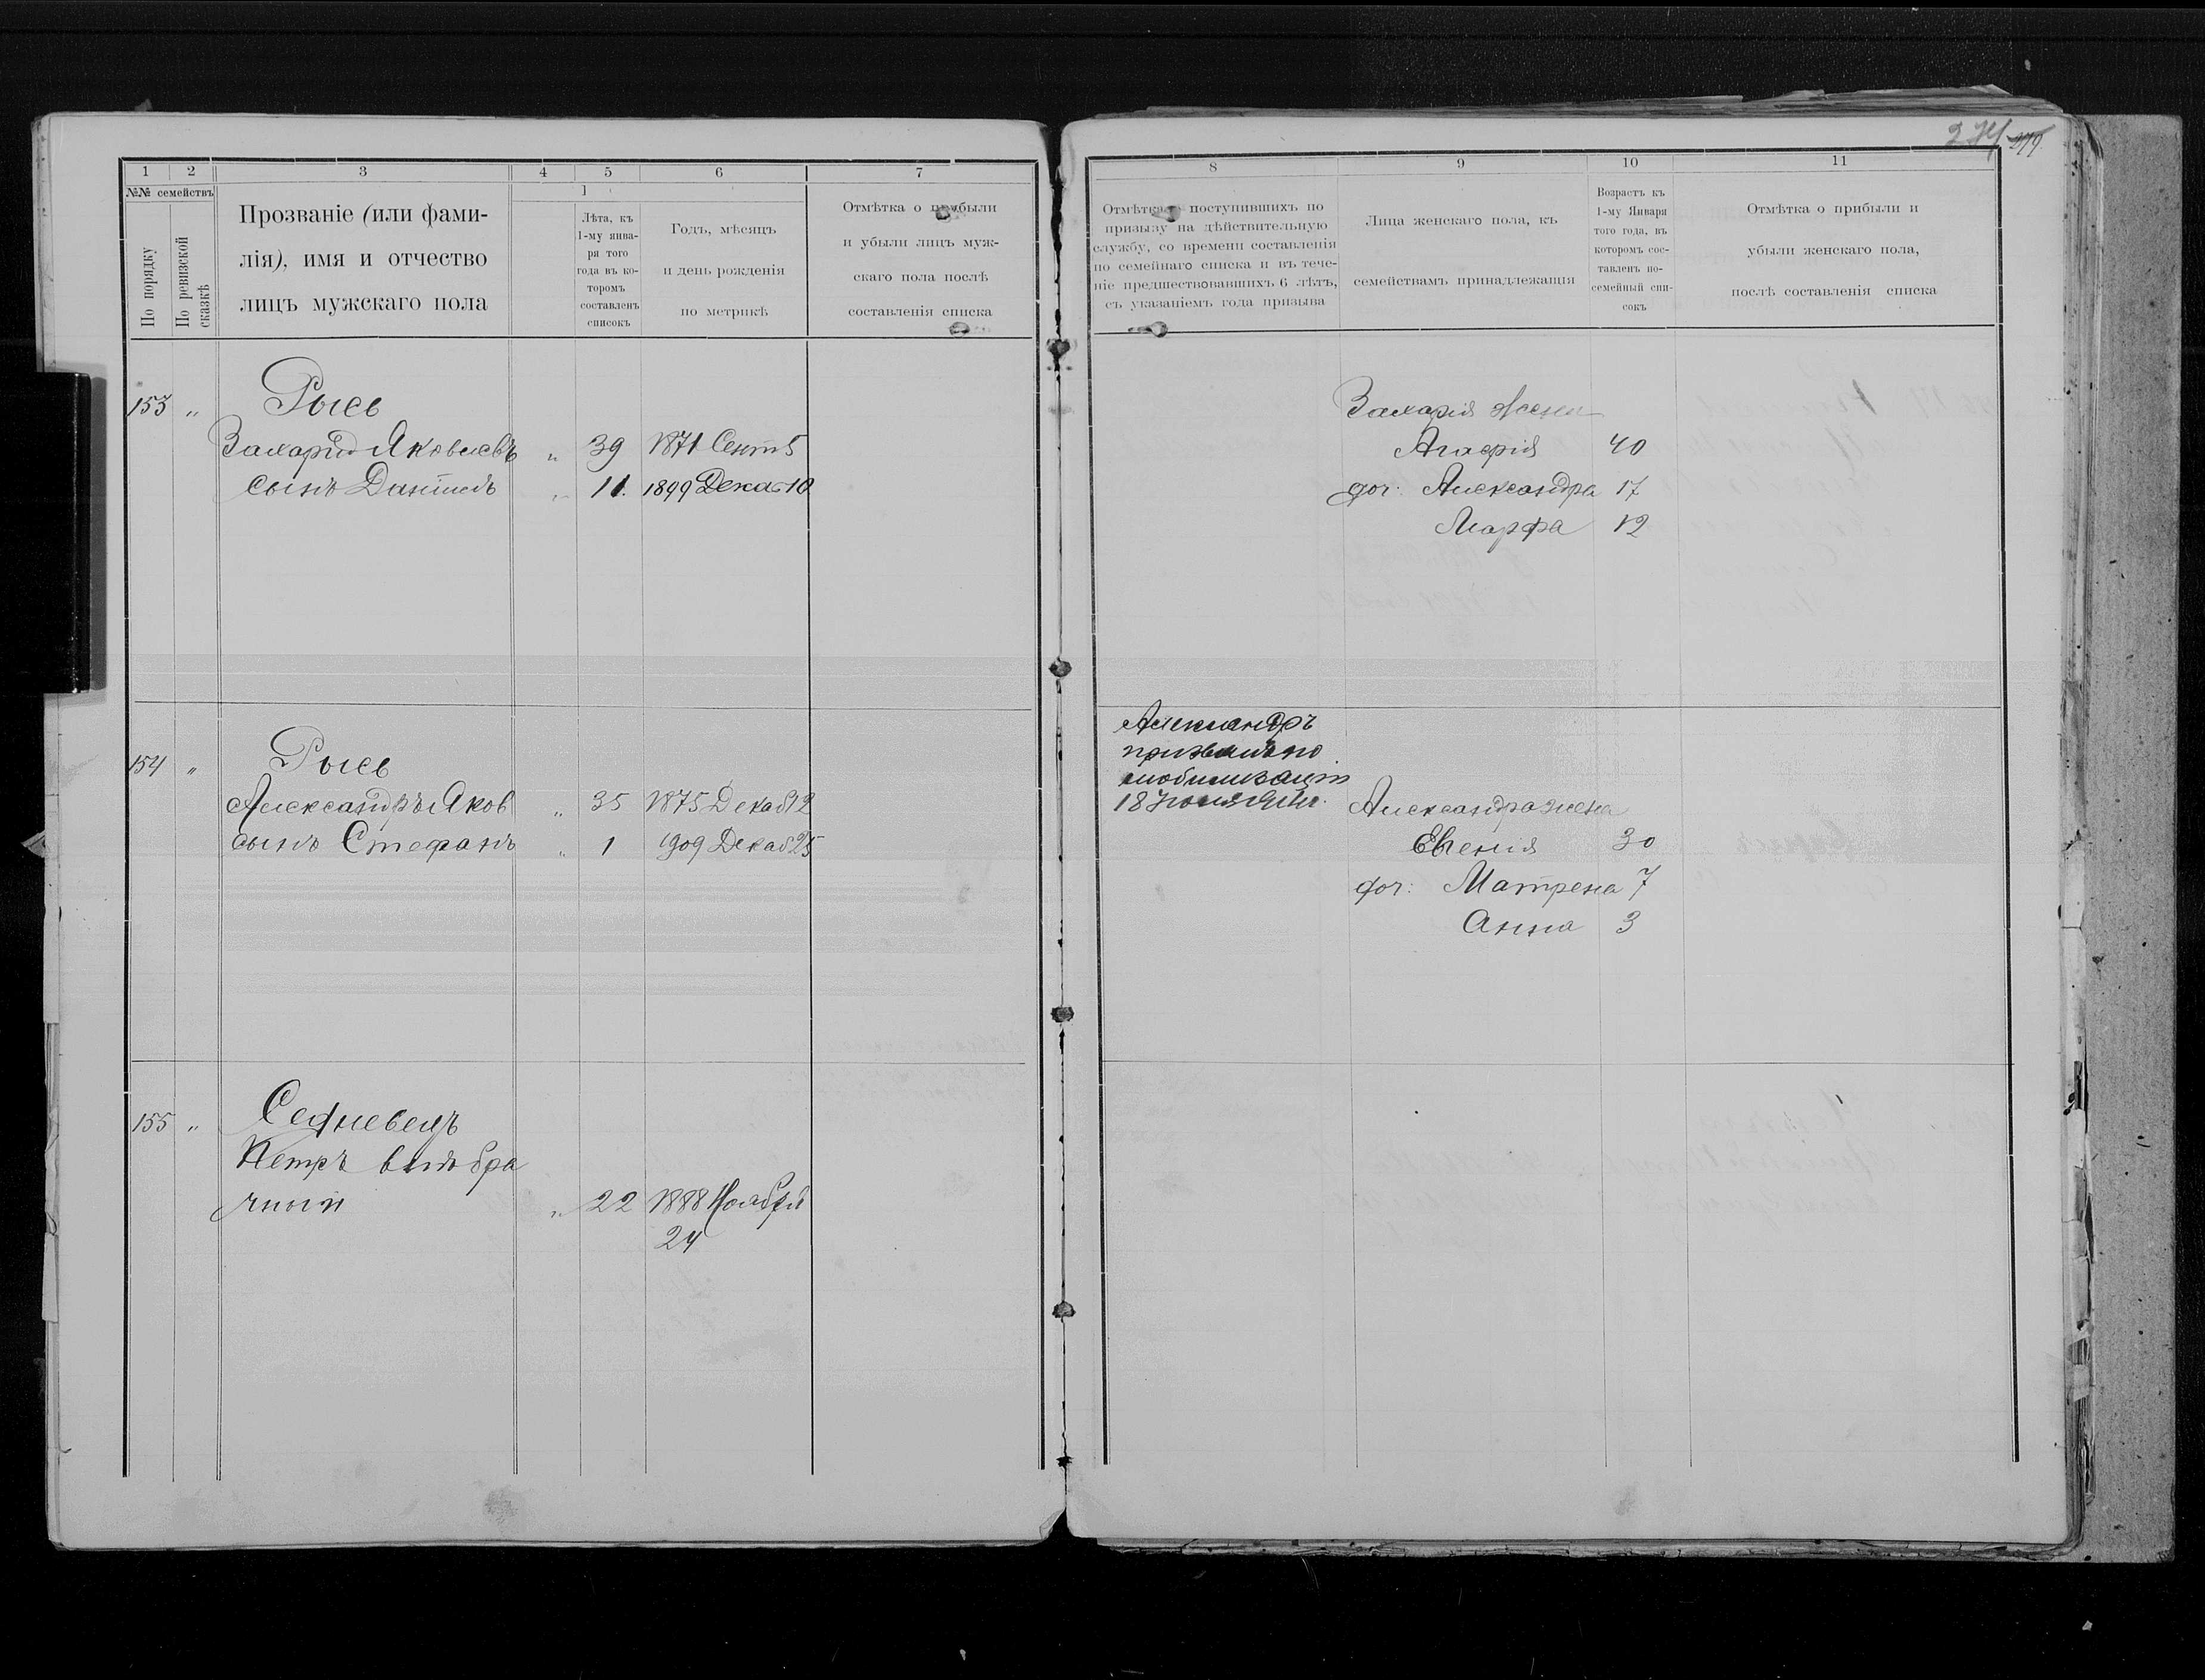 1 2 3 4 5 6 7
№№ семействъ
По порядку
По ревизской сказкѣ
Прозваніе (или фами-
лія), имя и отчество
лицъ мужскаго пола
Лѣта, къ
1-му янва-
ря того
года въ ко-
торомъ
составленъ
списокъ
Годъ, мѣсяцъ
и день рожденія
по метрикѣ
Отмѣтка о прибыли
и убыли лицъ муж-
скаго пола послѣ
составленія списка
153 „ Рысь
Захарій Яковлевъ „ 39 1871 Сент 5
сынъ Даніилъ „ 11. 1899 Дека 10
154 „ Рысь
Александръ Яков „ 35 1875 Декаб 12
сынъ Стефанъ „ 1 1909 Декаб 25
155 „ Седневецъ
Петръ внѣ бра
чный „ 22 1888 Ноября
24
274
8 9 10 11
Отмѣтка о поступившихъ по
призыву на дѣйствительную
службу, со времени составленія
по семейнаго списка и въ тече-
ніе предшествовавшихъ 6 лѣтъ,
съ указаніемъ года призыва
Лица женскаго пола, къ
семействамъ принадлежащія
Возрастъ къ
1-му Января
того года, въ
которомъ сос-
тавленъ по-
семейный спи-
сокъ
Отмѣтка о прибыли и
убыли женскаго пола,
послѣ составленія списка
Захарія жена
Агафія 40
доч: Александра 17
Марфа 12
Александръ
призванъ по
мобилизаціи
18 Іюля 1914 г.
Александра жена
Евгенія 30
доч: Матрена 7
Анна 3